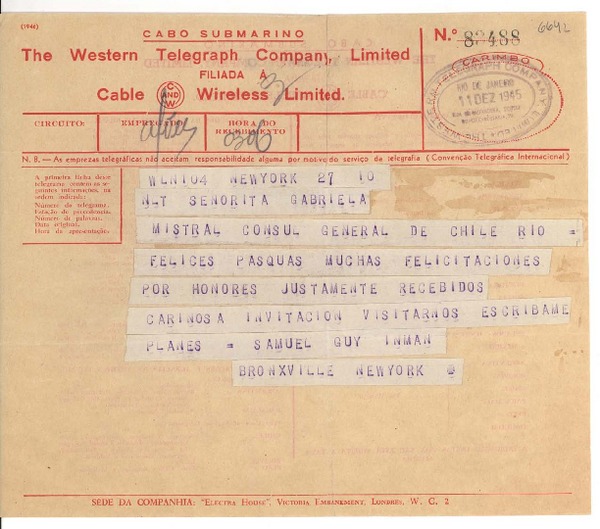 (1946)
CABO SUBMARINO
The Western Telegraph Company, Limited
FILIADA À
Cable AND Wireless Limited.
C AND W
N.º 82488
6642
CARIMBO
THE WESTERN TELEGRAPH COMPANY LIMITED
RIO DE JANEIRO
11 DEZ 1945
CIRCUITO:
EMPREGADO
HORA DO
RECEBIMENTO
N. B. — As empresas telegráficas não aceitam responsabilidade alguma por motivo do serviço da telegrafia (Convenção Telegráfica Internacional)
A primeira linha deste
telegrama contem as se-
guintes informações, na
ordem indicada:
Número do telegrama.
Estação de procedencia.
Número de palavras.
Data original.
Hora de apresentação:
WLN104 NEWYORK 27 10
NLT SEÑORITA GABRIELA
MISTRAL CONSUL GENERAL DE CHILE RIO =
FELICES PASQUAS MUCHAS FELICITACIONES
POR HONORES JUSTAMENTE RECEBIDOS
CARINOSA INVITACION VISITARNOS ESCRIBAME
PLANES = SAMUEL GUY INMAN
BRONXVILLE NEWYORK
SEDE DA COMPANHIA: "ELECTRA HOUSE", VICTORIA EMBANKMENT, LONDRES, W. C. 2